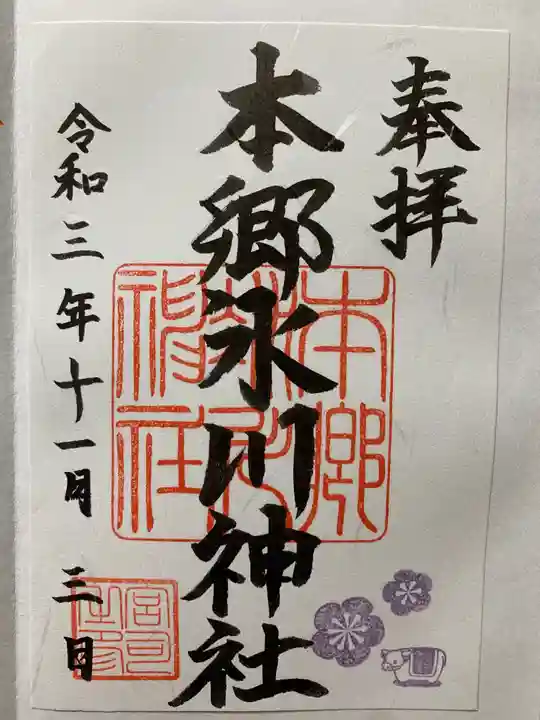 奉拝
本郷氷川神社
令和三年十一月三日
本郷氷川神社
宮司之印